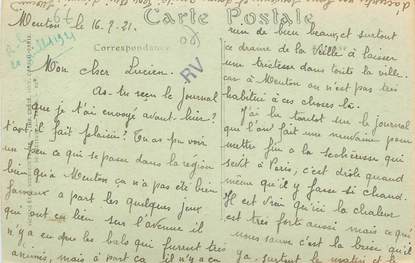 Carte Postale
Correspondance
Menton le 16-9-21.
Mon cher Lucien.
As-tu reçu le journal
que je t'ai envoyé avant-hier?
t'a-t-il fait plaisir? Tu as pu voir
un peu ce qui se passe dans la région
bien qu'à Menton ça n'a pas été bien
fameux a part les quelques jeux
qui ont eu lieu sur l'avenue il
n'y a eu que les bals qui furent très
animés, mais à part ça il n'y a eu
rien de bien beau, et surtout
ce drame de la Ville à laisser
une tristesse dans toute la ville.
car à Menton on n'est pas très
habitué à ces choses là.
J'ai lu tantôt sur le journal
que l'on fait une neuvaine pour
mettre fin a la sécheresse qui
sévit à Paris, c'est drôle quand
même qu'il y fasse si chaud.
Il est vrai qu'ici la chaleur
est très forte aussi mais ce qui
nous sauve c'est la brise qu'il
y a surtout le matin et le
RV